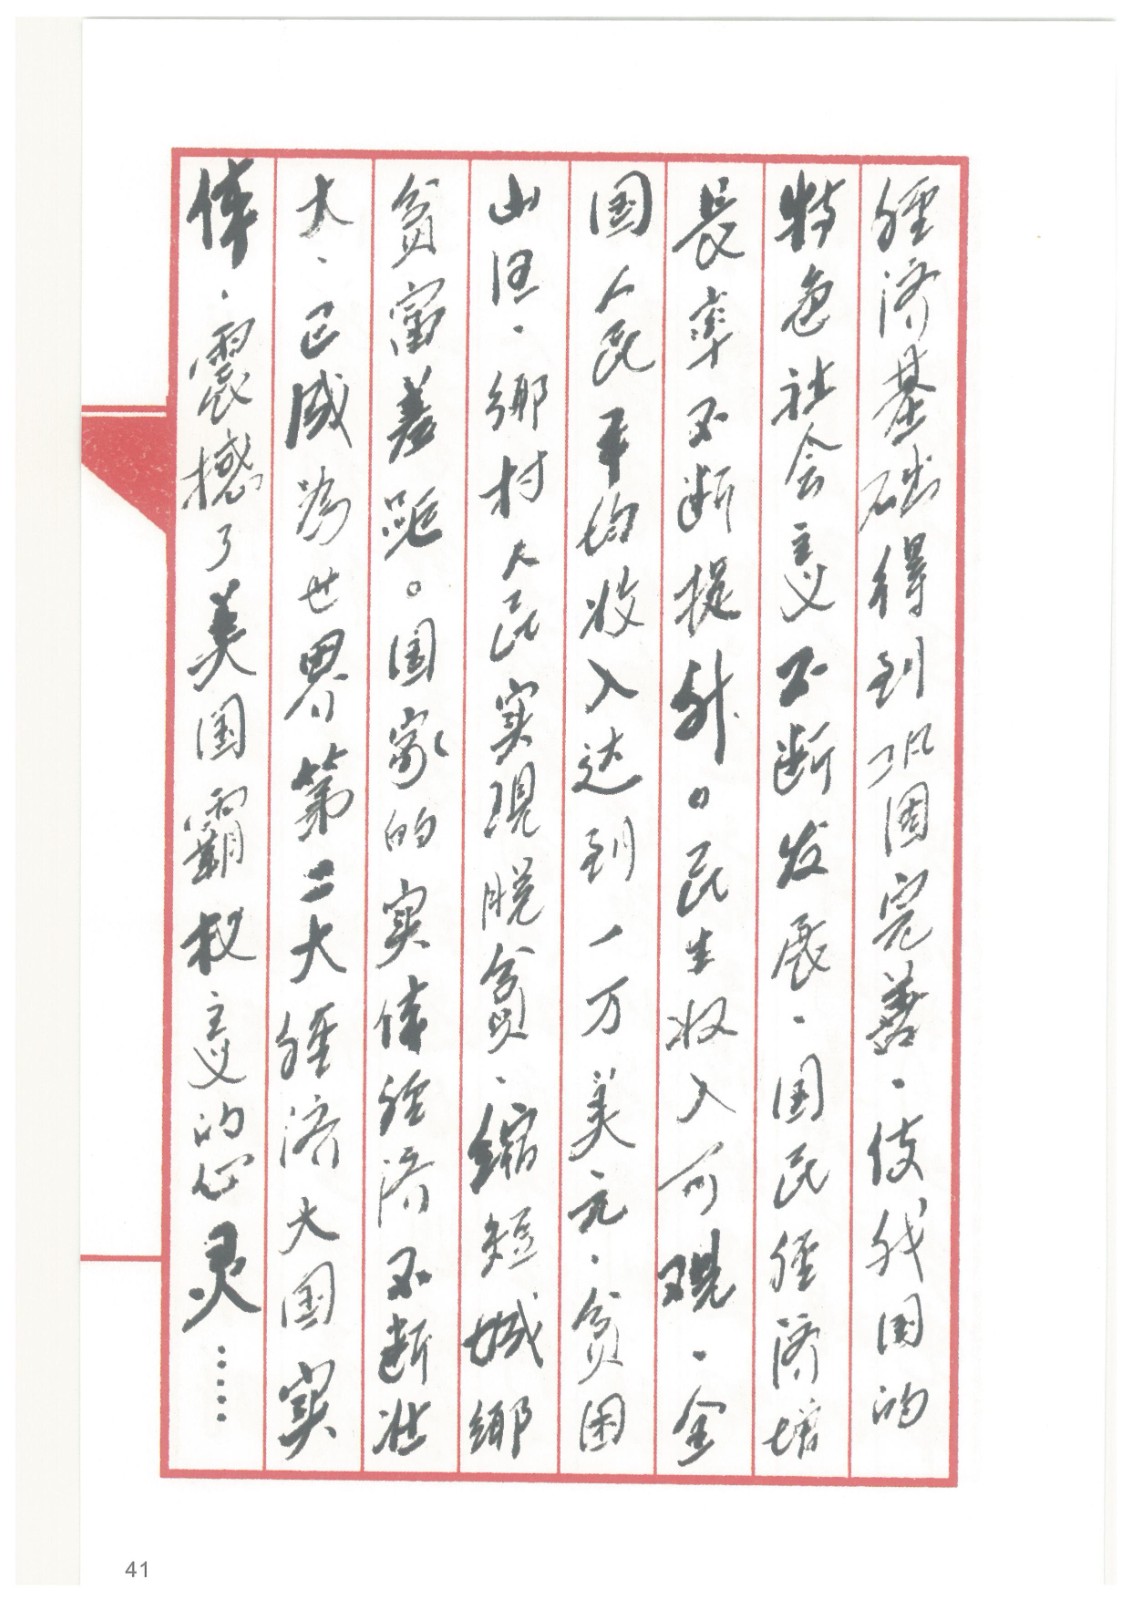 经济基础得到巩固完善、使我国的
特色社会主义不断发展、国民经济增
長率不断提升。民生收入可观、全
国人民平均收入达到一万美元、贫困
山区、鄉村人民实现脱贫、缩短城鄉
贫富差距。国家的实体经济不断壮
大、已成為世界第二大经济大国实
体、震撼了美国霸权主义的心灵……
41